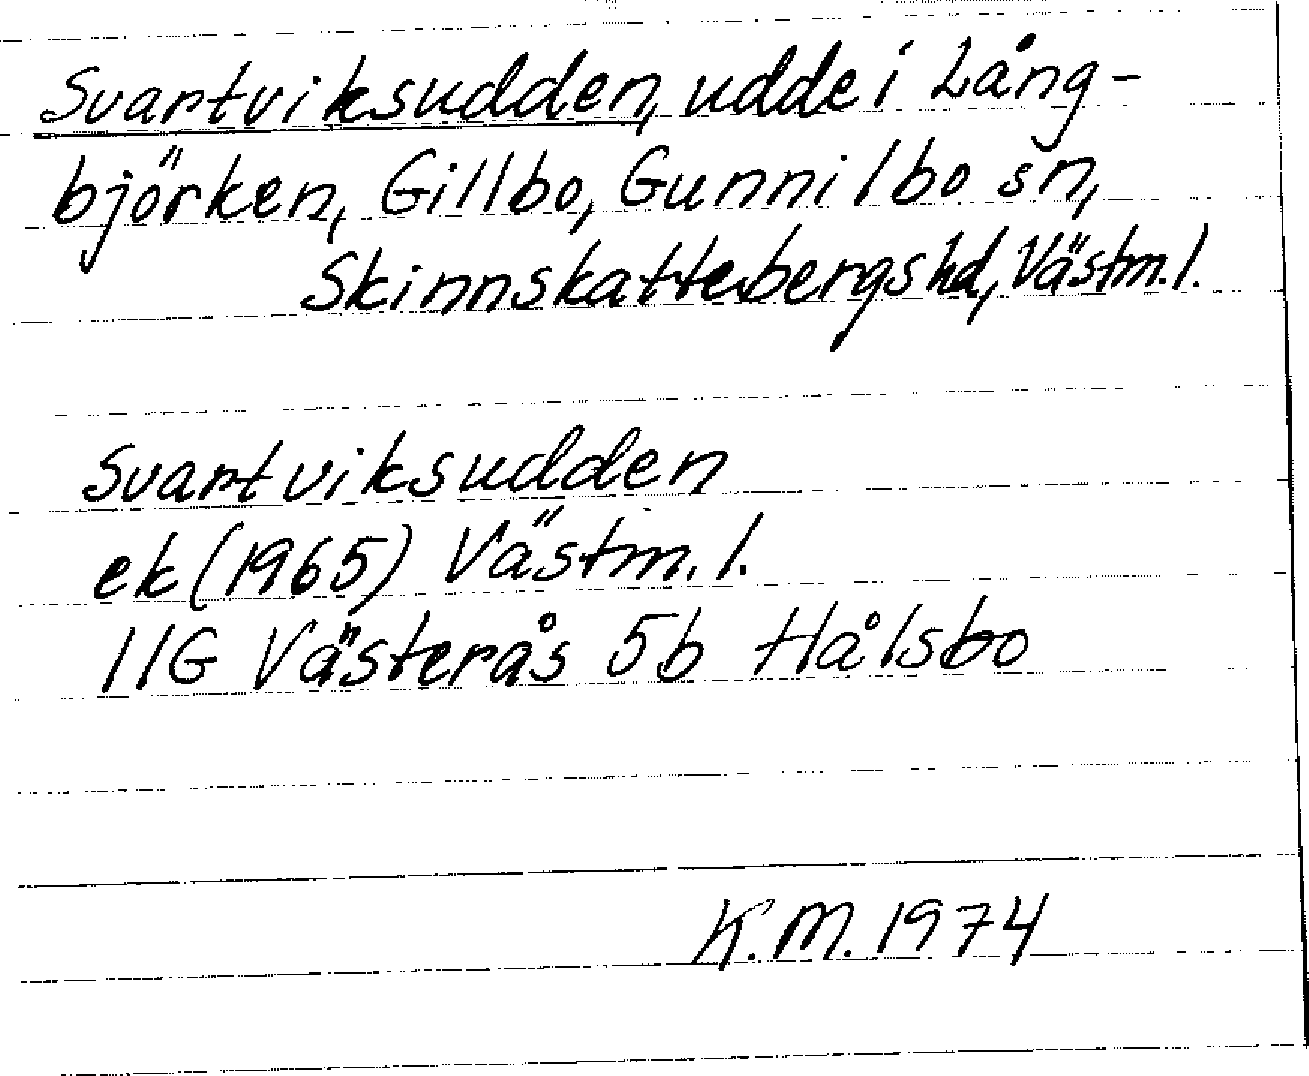 Svartviksudden, udde i Lång-
björken, Gillbo, Gunnilbo sn,
Skinnskattebergs hd, Västm. l.
Svartviksudden
ek (1965) Västm. l.
11G Västerås 5b Hålsbo
K.M. 1974